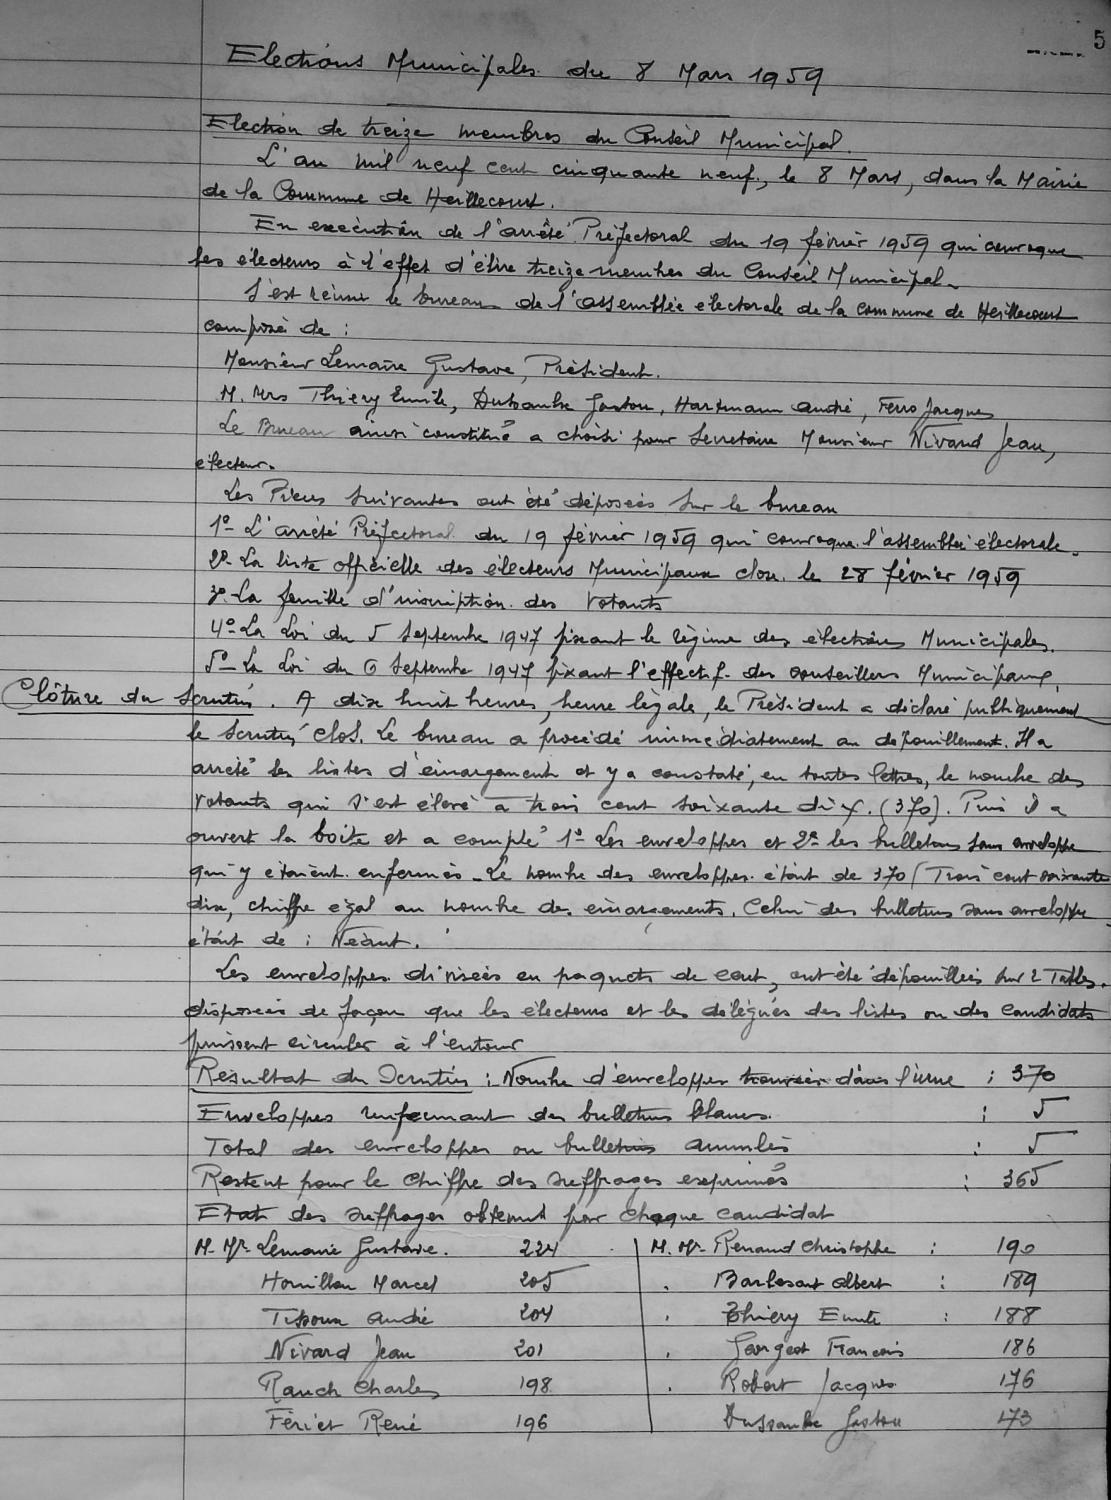 5
Elections Municipales du 8 Mars 1959
Election de treize membres du Conseil Municipal.
L'an mil neuf cent cinquante neuf, le 8 Mars, dans la Mairie
de la Commune de Heillecourt.
En exécution de l'arrêté Préfectoral du 19 février 1959 qui convoque
les électeurs à l'effet d'élire treize membres du Conseil Municipal.
S'est réuni le bureau de l'assemblée electorale de la commune de Heillecourt
composé de :
Monsieur Lemaire Gustave, Président.
M. Mrs Thiéry Emile, Dussaulx Gaston, Hartmann André, Ferro Jacques
Le Bureau ainsi constitué a choisi pour Secretaire Monsieur Nivard Jean,
électeur.
Les Pièces suivantes ont été déposées sur le bureau
1º- L'arrêté Préfectoral du 19 février 1959 qui convoque l'assemblée électorale.
2º- La liste officielle des électeurs Municipaux close le 28 février 1959
3º- La feuille d'inscription des Votants
4º- La Loi du 5 Septembre 1947 fixant le régime des élections Municipales.
5º- La Loi du 6 Septembre 1947 fixant l'effectif des conseillers Municipaux.
Clôture du Scrutin. A dix huit heures, heure légale, le Président a déclaré publiquement
le scrutin clos. Le bureau a procédé immédiatement au dépouillement. Il a
arrêté les listes d'émargement et y a constaté, en toutes lettres, le nombre des
Votants qui s'est élevé a trois cent soixante dix. (370). Puis il a
ouvert la boîte et a compté 1º- Les enveloppes et 2º- les bulletins sans enveloppe
qui y étaient enfermés - Le nombre des enveloppes était de 370 (Trois cent soixante
dix, chiffre égal au nombre des émargements. Celui des bulletins sans enveloppe
était de : Néant.
Les enveloppes divisées en paquets de cent, ont été dépouillées sur 2 Tables.
disposées de façon que les électeurs et les délégués des listes ou des candidats
puissent circuler à l'entour
Résultat du Scrutin : Nombre d'enveloppes trouvées dans l'urne : 370
Enveloppes renfermant des bulletins blancs. : 5
Total des enveloppes ou bulletins annulés : 5
Restent pour le chiffre des suffrages exprimés : 365
Etat des suffrages obtenus par chaque candidat
M. Mr. Lemaire Gustave. 224 M. Mr. Renaud Christophe : 190
Houillon Marcel 205 . Barbesant Albert : 189
Tissoux André 204 . Thiéry Emile : 188
Nivard Jean 201 . Gorgeot Francois 186
Rauch Charles 198 . Robert Jacques 176
Fériet René 196 Dussaulx Gaston 173